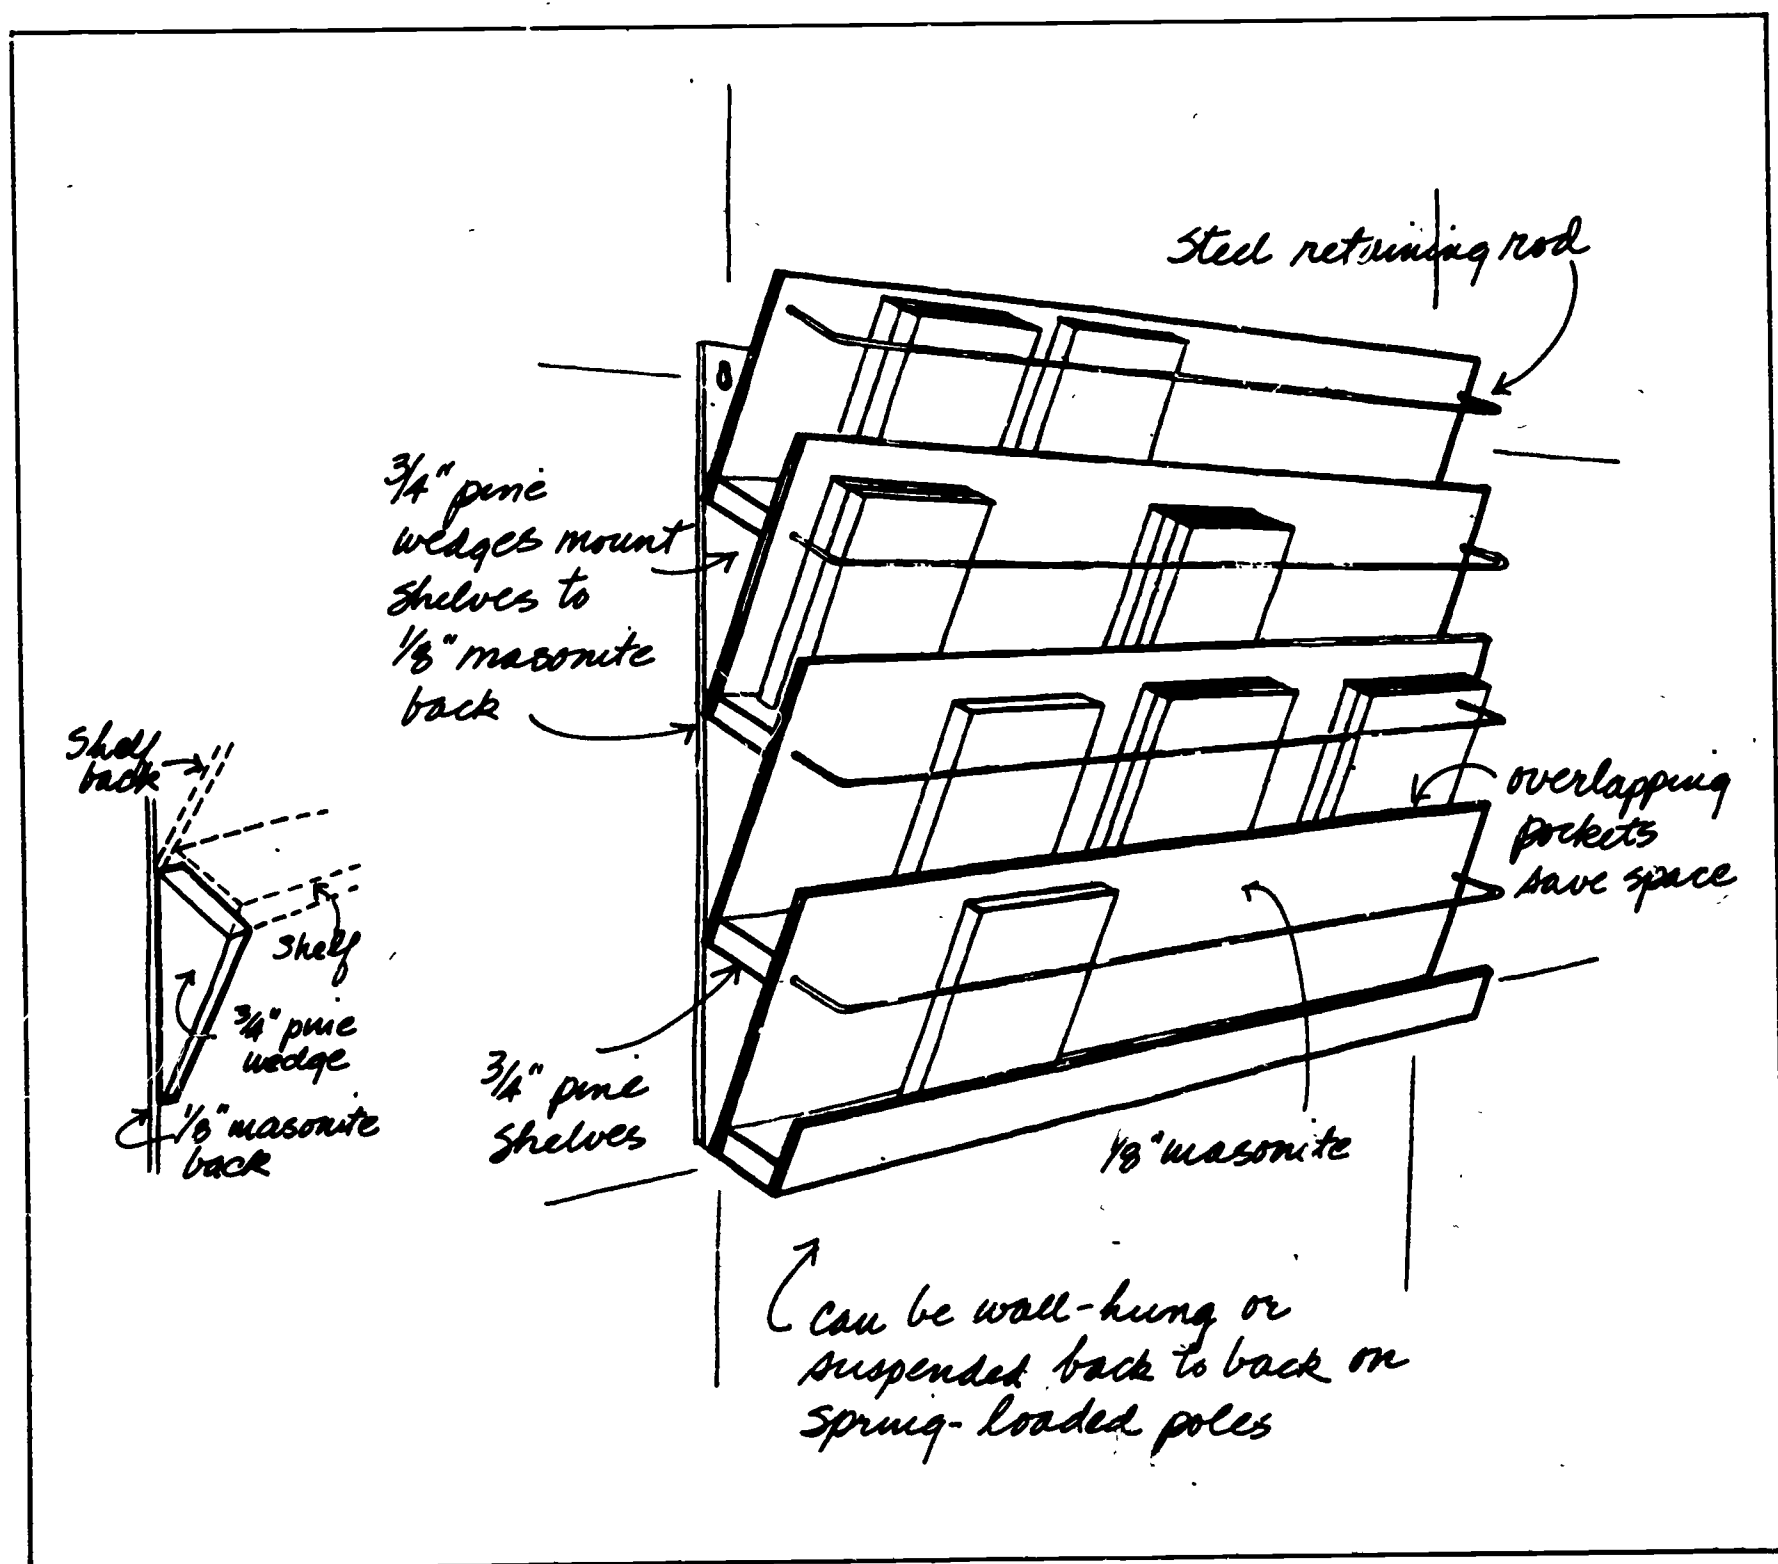 Steel retaining rod
3/4" pine
wedges mount
shelves to
1/8" masonite
back
Shelf
back
shelf
3/4" pine
wedge
1/8" masonite
back
overlapping
pockets
save space
3/4" pine
shelves
1/8" masonite
can be wall-hung or
suspended back to back on
spring-loaded poles